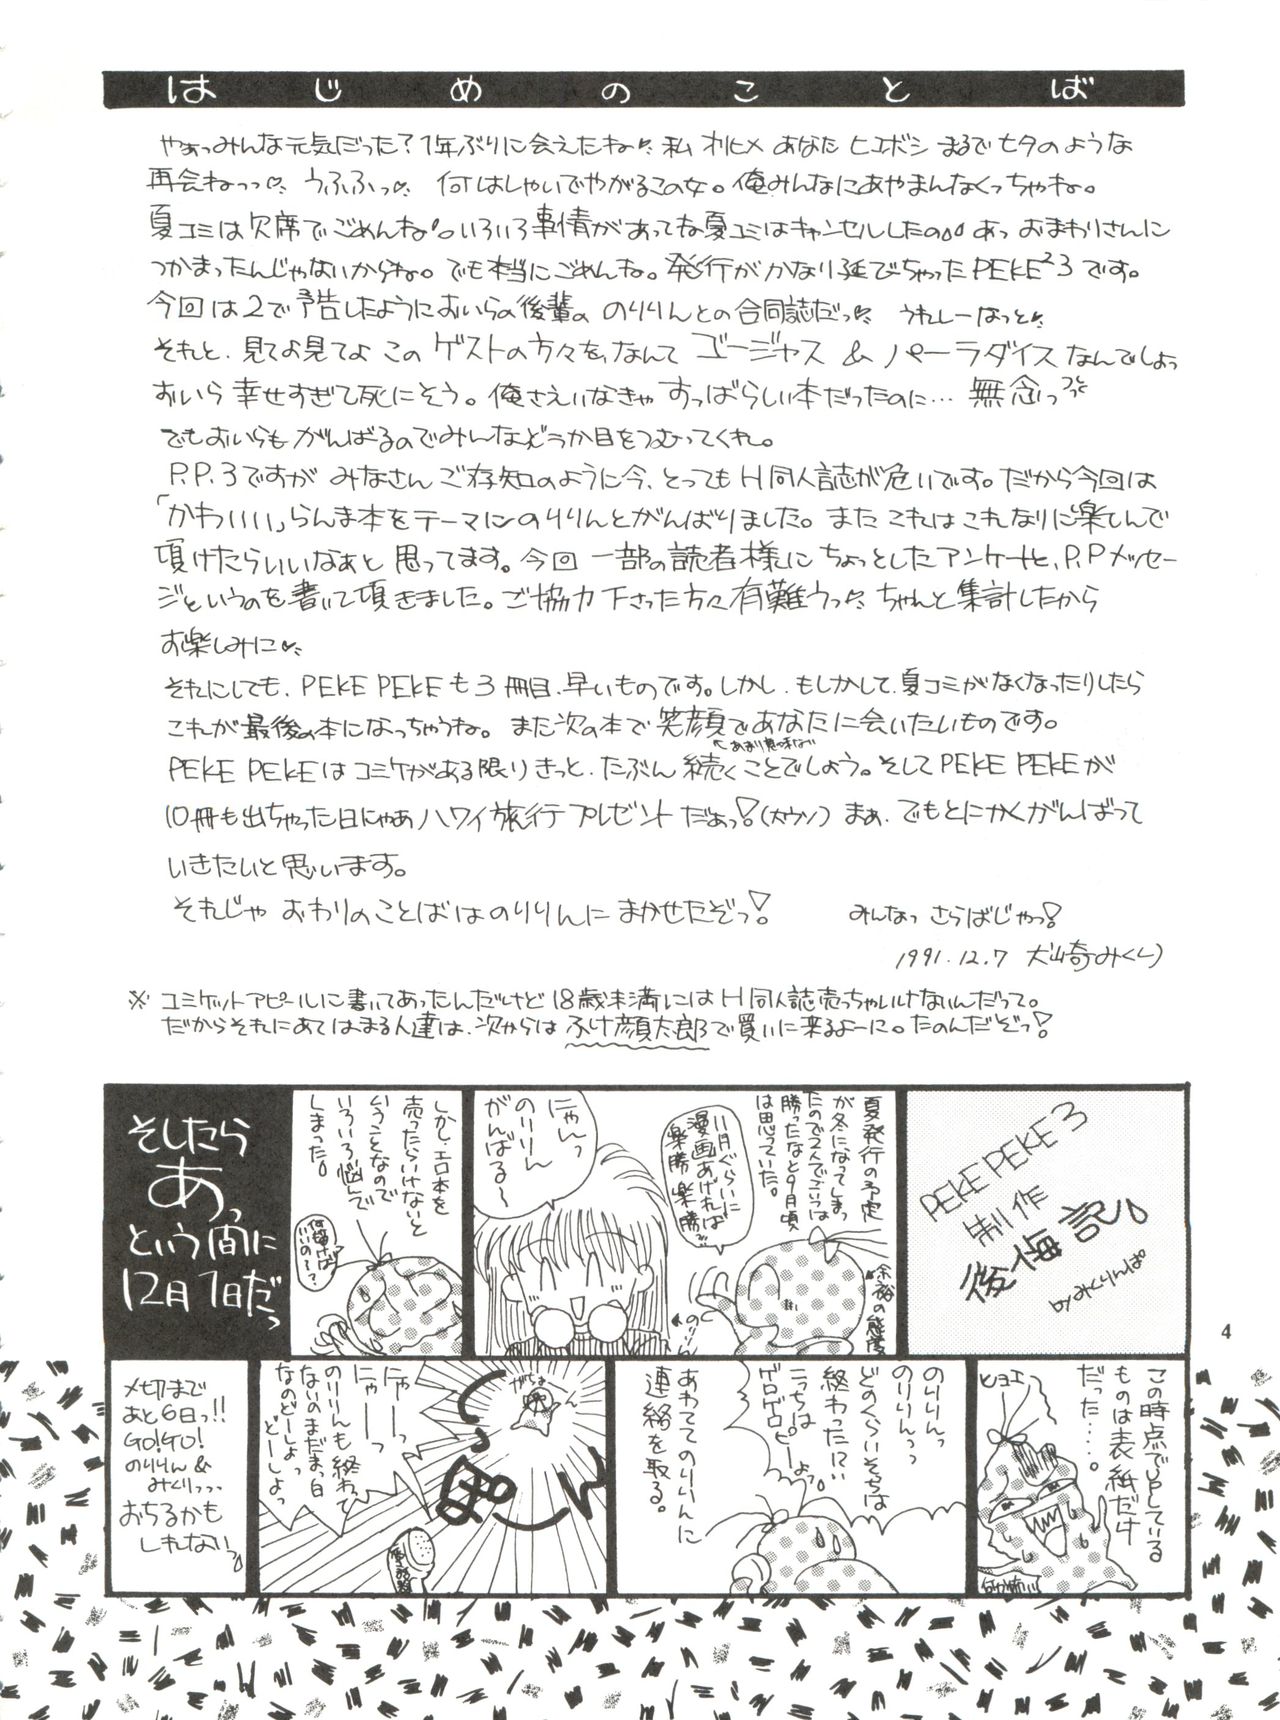 はじめのことば
やぁっみんな元気だった？1年ぶりに会えたね 私 オリヒメ あなた ヒコボシ まるで七夕のような
再会ねっっ うふふっ 何はしゃいでやがるこの女。俺みんなにあやまんなくっちゃね。
夏コミは欠席でごめんね。いろいろ事情があってね夏コミはキャンセルしたの あっ おまわりさんに
つかまったんじゃないからね。でも本当にごめんね。発行がかなり延びちゃったPEKE²3です。
今回は2で予告したようにおいらの後輩の のりりんとの合同誌だっ うれしーなっと
それと、見てよ見てよ このゲストの方々を、なんてゴージャス & パーラダイスなんでしょっ
おいら幸せすぎて死にそう。俺さえいなきゃすっばらしい本だったのに… 無念っ
でもおいらもがんばるのでみんなどうか目をつむってくれ。
P.P.3ですが みなさんご存知のように今、とってもH同人誌が危いです。だから今回は
「かわいい」らんま本をテーマにのりりんとがんばりました。また これはこれなりに楽しんで
頂けたらいいなぁと思ってます。今回 一部の読者様にちょっとしたアンケートと、P.Pメッセー
ジというのを書いて頂きました。ご協力下さった方々有難うっ ちゃんと集計したから
お楽しみに
それにしても、PEKE PEKEも3冊目、早いものです。しかし、もしかして、夏コミがなくなったりしたら
これが最後の本になっちゃうね。また次の本で笑顔であなたに会いたいものです。
←あまり意味ない
PEKE PEKEはコミケがある限りきっと、たぶん 続くことでしょう。そしてPEKE PEKEが
10冊も出ちゃった日にゃあハワイ旅行プレゼント だぁっ!(大ウソ) まぁ、でもとにかくがんばって
いきたいと思います。
それじゃ おわりのことばはのりりんに まかせたぞっ! みんなっ さらばじゃっ!
1991.12.7 犬崎みくり
※ コミケットアピールに書いてあったんだけど 18歳未満にはH同人誌売っちゃいけないんだって。
だからそれにあてはまる人達は、次からはふけ顔太郎で買いに来るよーに。たのんだぞっ!
PEKE PEKE 3
制作
後悔記
by みくりんぱ
夏発行の予定
が冬になってしまっ
たので2人でこいつは
勝ったなと9月頃
は思っていた。
余裕の態度
11月ぐらいに
漫画あげれば
楽勝楽勝
にゃんっ
のりりん
がんばる〜
のりりん
しかし、エロ本を
売ったらいけないと
いうことなので
いろいろ悩んで
しまった。
何描けば
いいの〜?
そしたら
あっ
という間に
12月1日だっ
この時点でUPしている
ものは表紙だけ
だった……。
ヒョエ
のりりんっ
のりりんっ
どのくらいそちらは
終わったに?い
こっちは
ゲロゲロピーよっ
あわててのりりんに
連絡を取る。
にゃーっ
にゃーっ
のりりんも終わって
ないのまだまっ白
なのどーしよっ
どーしよっ
〆切まで
あと6日っ!!
GO!GO!
のりりん &
みくりっっ
おちるかも
しれないっ
4